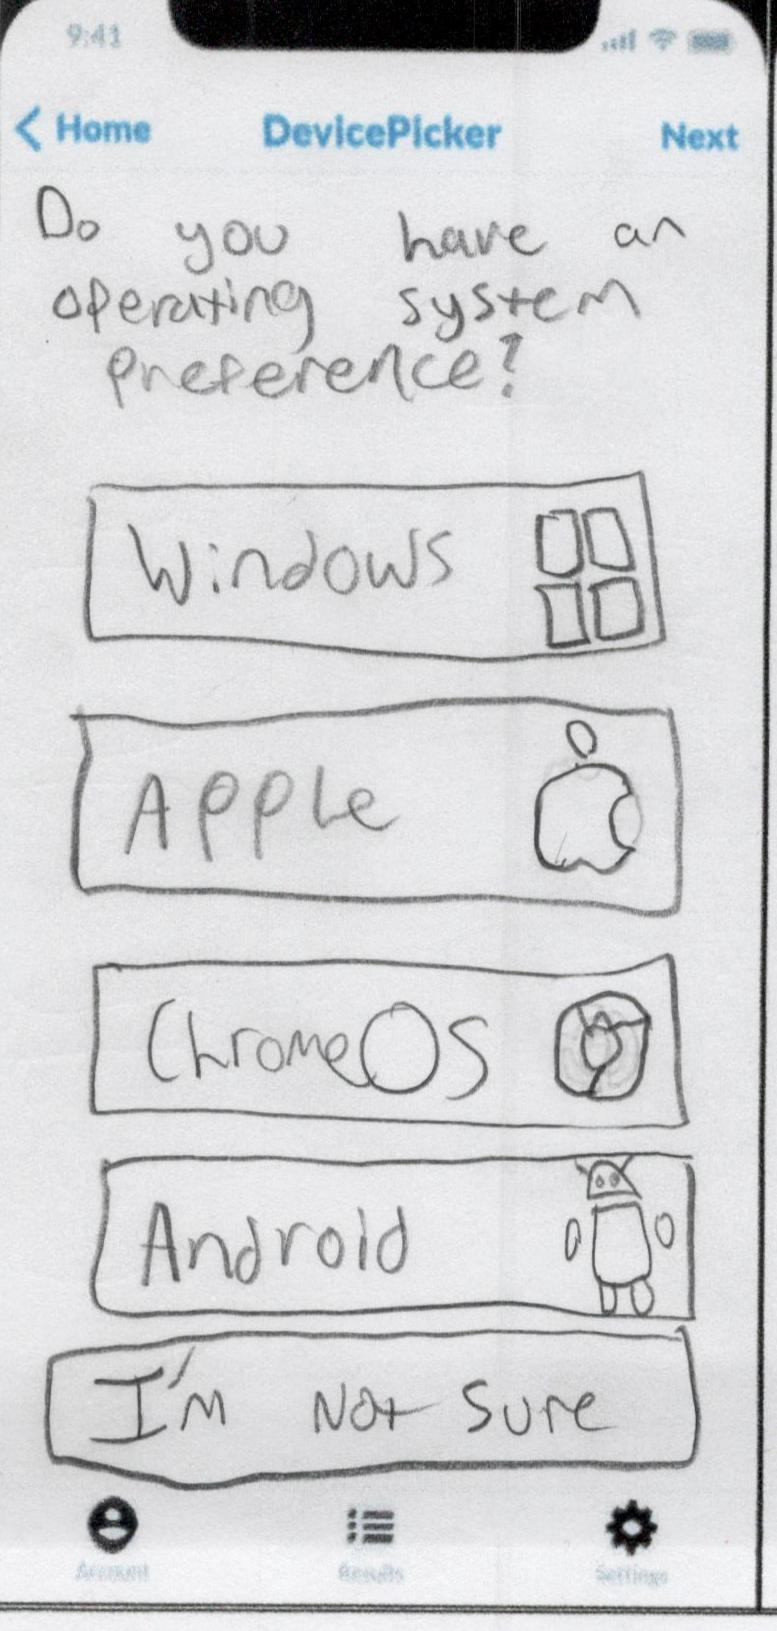 9:41
Home DevicePicker Next
Do you have an
operating system
preference?
Windows
Apple
ChromeOS
Android
I'm Not Sure
Account Results Settings